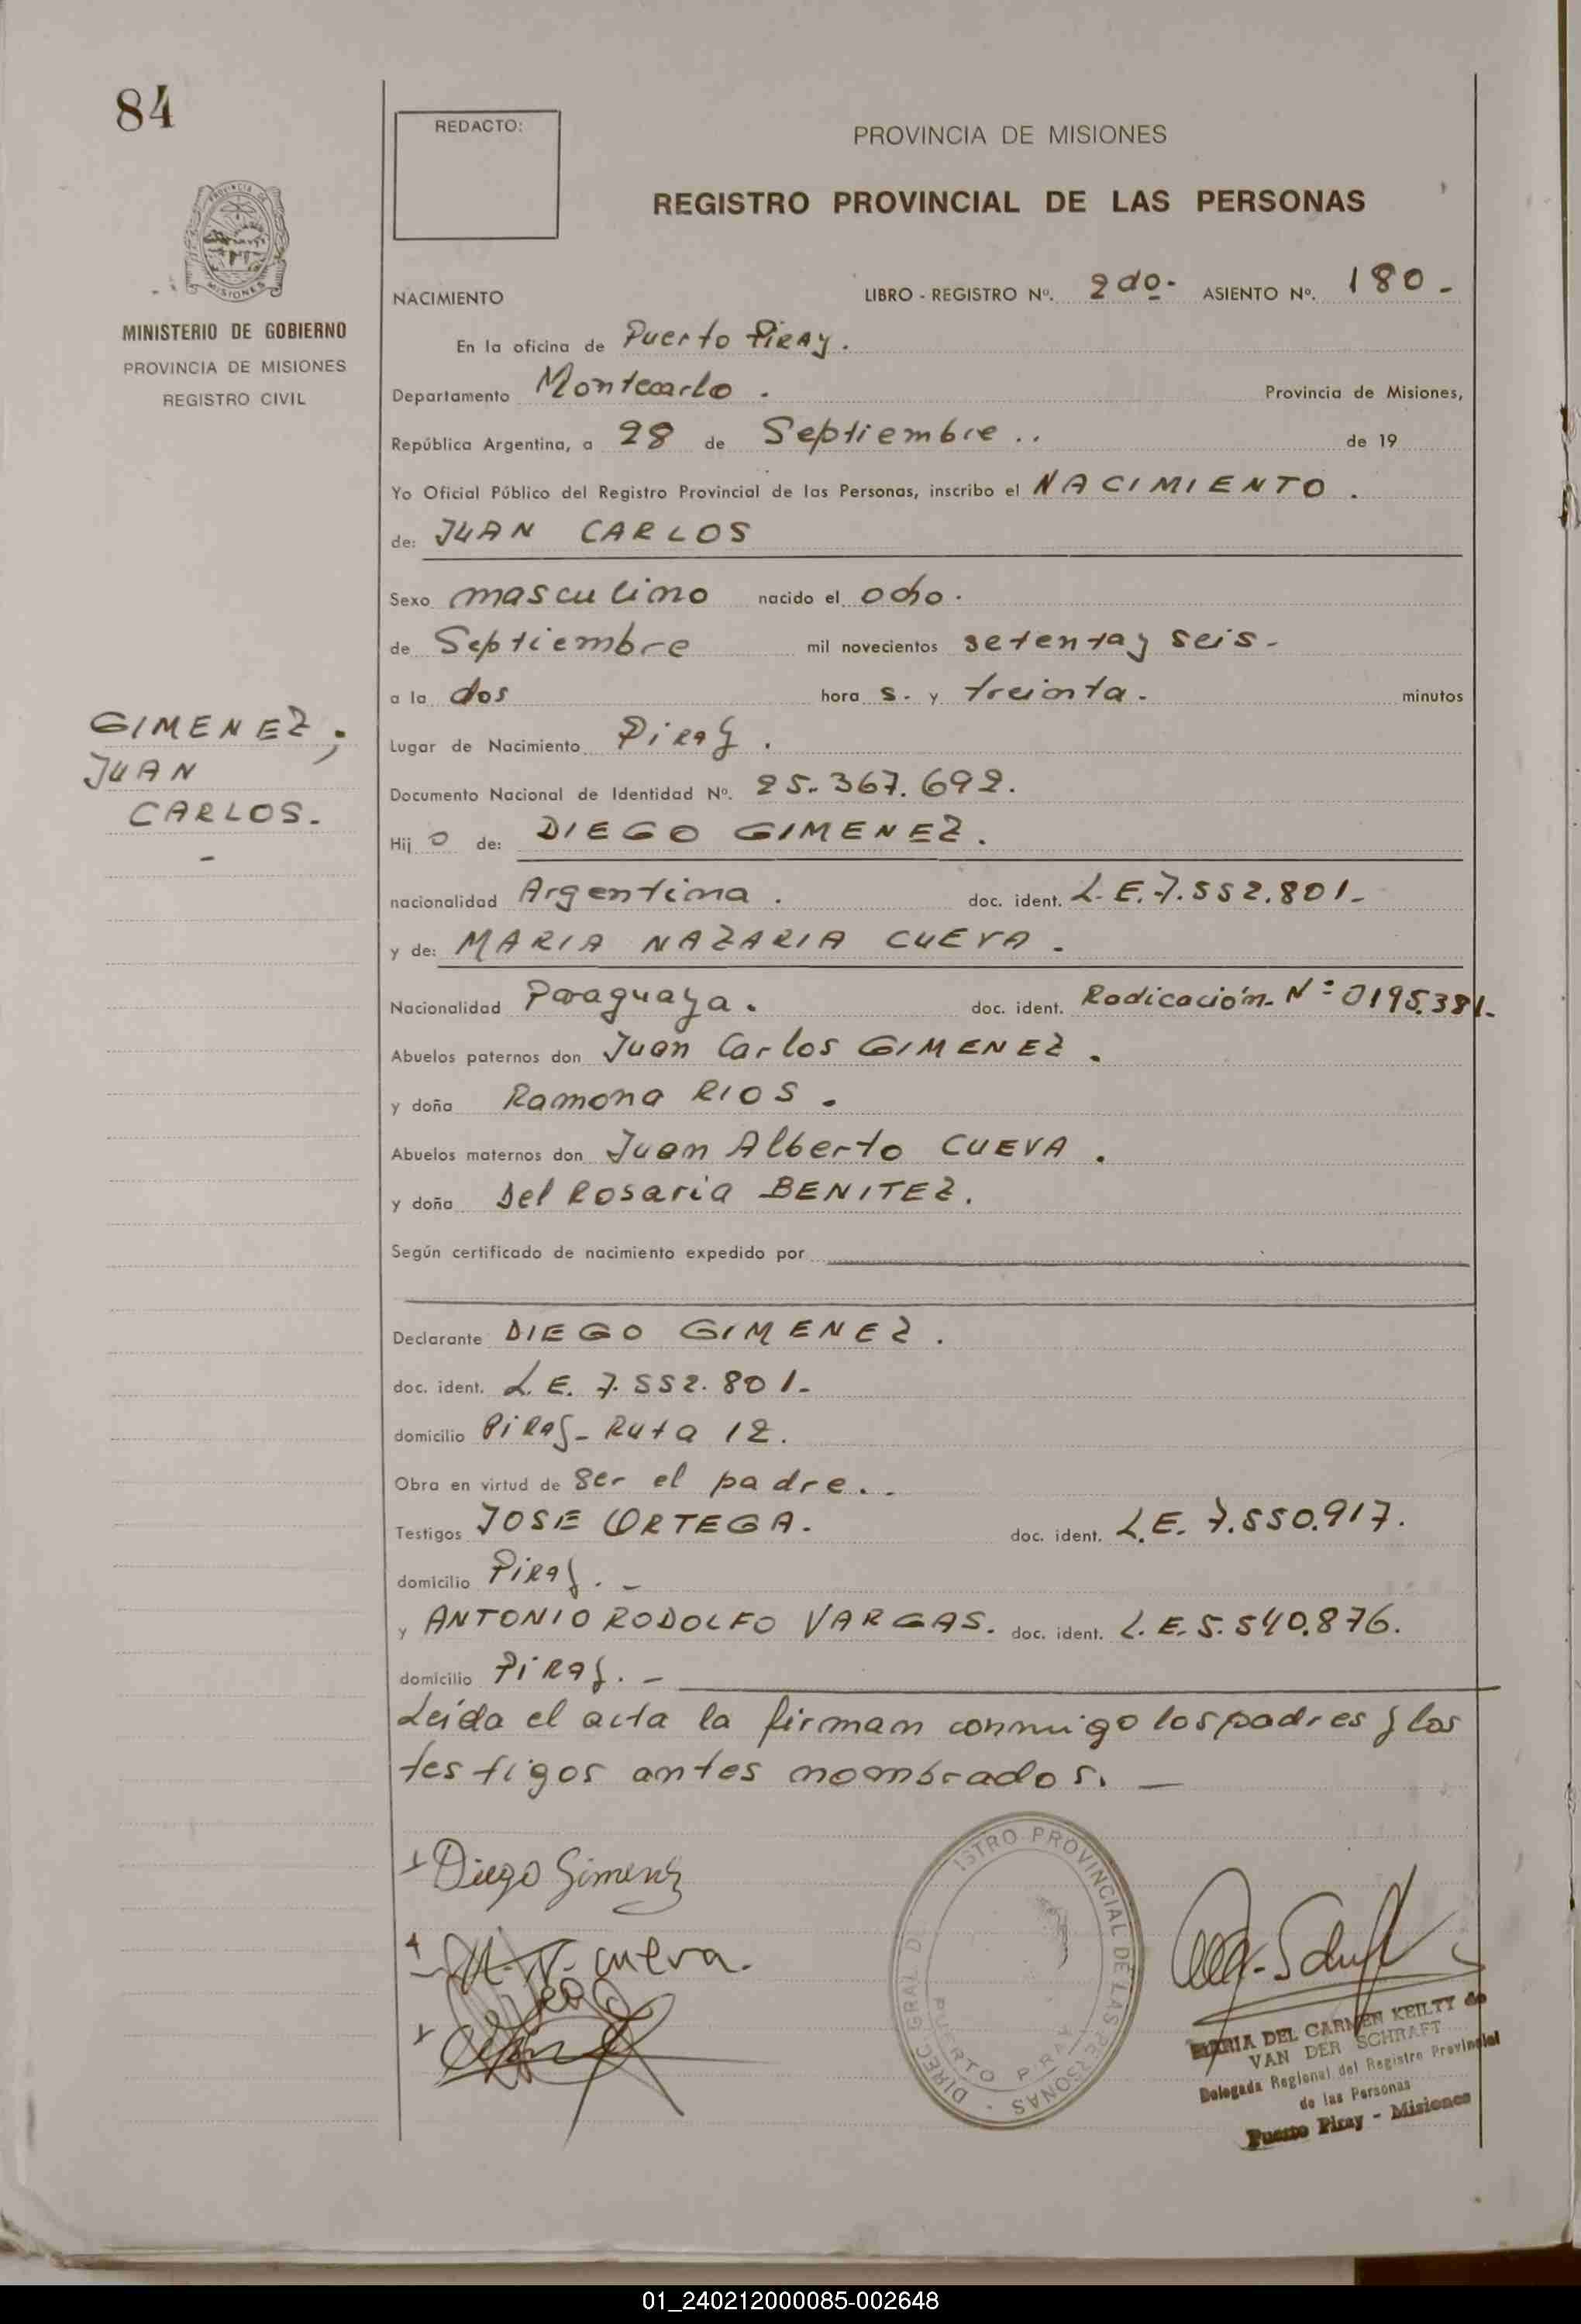 84
REDACTO:
PROVINCIA DE MISIONES
REGISTRO PROVINCIAL DE LAS PERSONAS
MISIONES
MINISTERIO DE GOBIERNO
PROVINCIA DE MISIONES
REGISTRO CIVIL
NACIMIENTO LIBRO - REGISTRO Nº. 2do- ASIENTO Nº. 180-
En la oficina de Puerto Piray.
Departamento Montecarlo. Provincia de Misiones,
República Argentina, a 28 de Septiembre.. de 19
Yo Oficial Público del Registro Provincial de las Personas, inscribo el NACIMIENTO.
de: JUAN CARLOS
Sexo masculino nacido el ocho.
de Septiembre mil novecientos setenta y seis-
a la dos hora s. y treinta. minutos
GIMENEZ;
JUAN
CARLOS.
-
Lugar de Nacimiento Piray.
Documento Nacional de Identidad Nº. 25.367.692.
Hij o de: DIEGO GIMENEZ.
nacionalidad Argentina. doc. ident. L.E.7.552.801-
y de: MARIA NAZARIA CUEVA.
Nacionalidad Paraguaya. doc. ident. Radicación-Nº 0195.381-
Abuelos paternos don Juan Carlos GIMENEZ.
y doña Ramona RIOS.
Abuelos maternos don Juan Alberto CUEVA.
y doña Del Rosaria BENITEZ.
Según certificado de nacimiento expedido por
Declarante DIEGO GIMENEZ.
doc. ident. L.E. 7.552.801-
domicilio Piray- Ruta 12.
Obra en virtud de ser el padre..
Testigos JOSE ORTEGA. doc. ident. L.E. 7.550.917.
domicilio Piray.-
y ANTONIO RODOLFO VARGAS. doc. ident. L.E.5.540.876.
domicilio Piray.-
Leída el acta la firman conmigo los padres y los
testigos antes nombrados.-
Diego Gimenez
M. N. cueva.
DIREC. GRAL. D ISTRO PROVINCIAL DE LAS PERSONAS
PUERTO PIRAY
MARIA DEL CARMEN KEILTY de
VAN DER SCHRAFT
Delegada Regional del Registro Provincial
de las Personas
Puerto Piray - Misiones
01_240212000085-002648